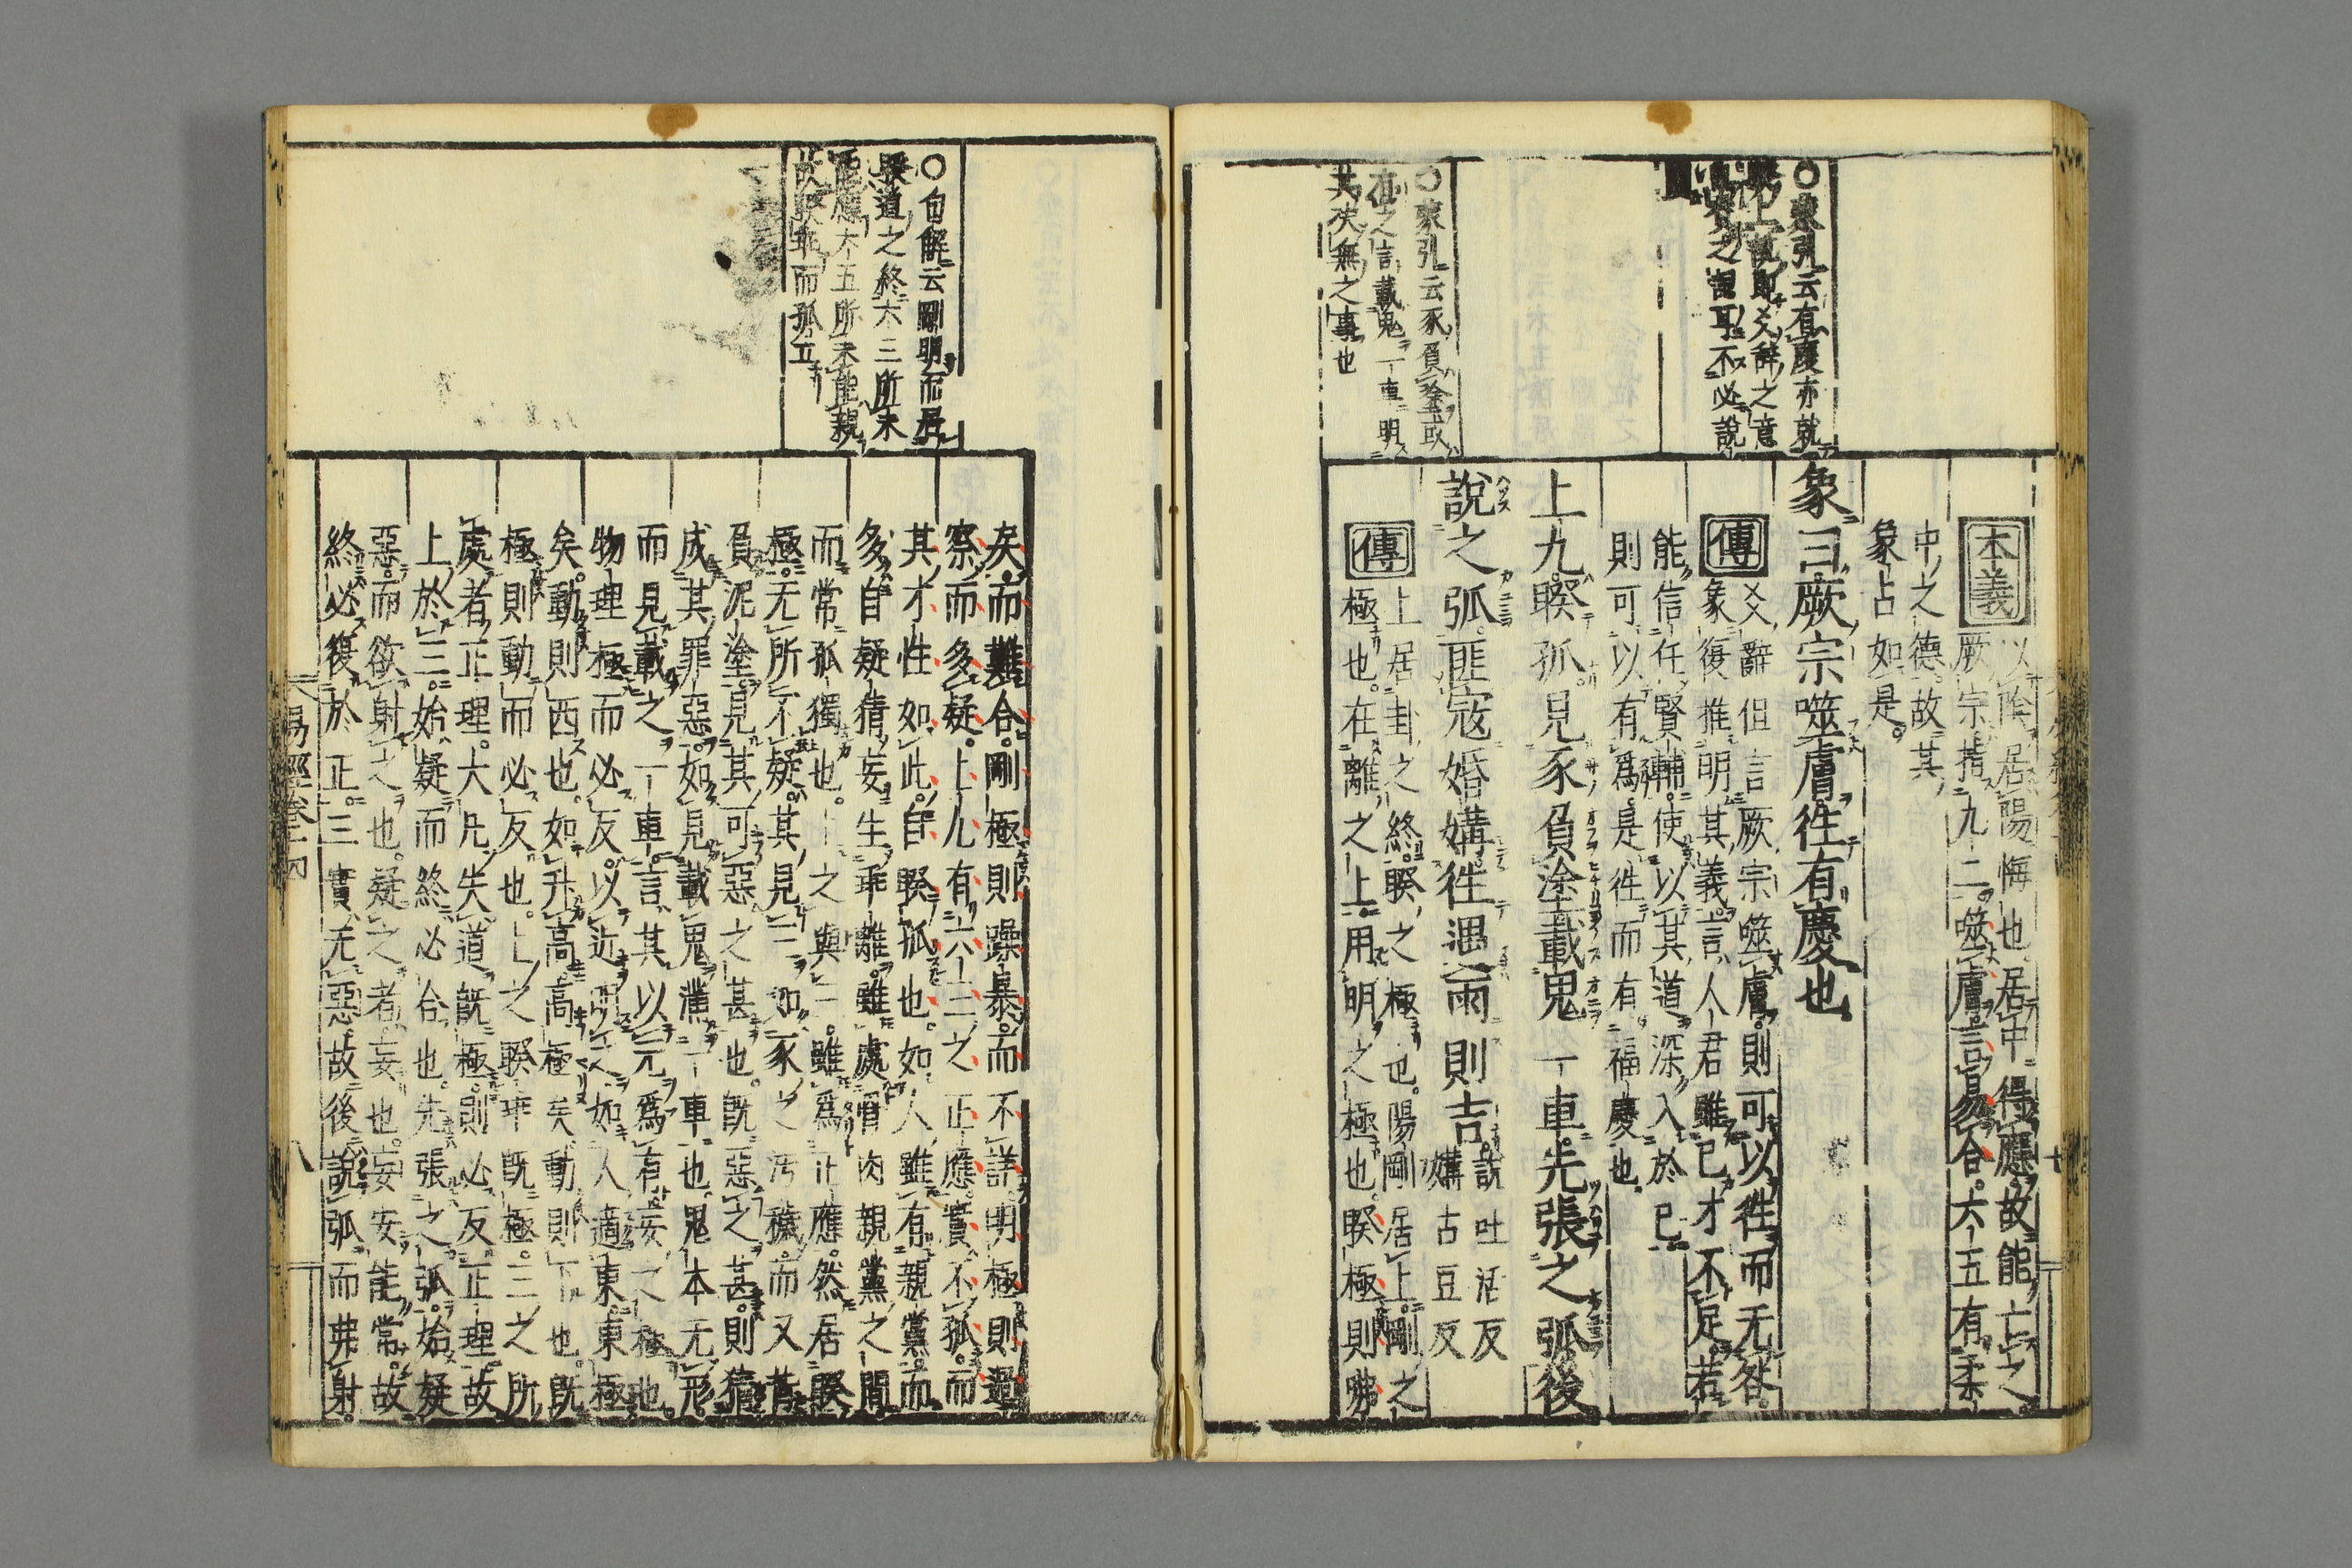 ○蒙引云有慶亦就
爻辭之意
之說耳不必說
○蒙引云豕負塗或
有之言載鬼一車明
其决無之事也
本義
以陰居陽悔也居中得應故能亡之
厥宗指九二噬膚言易合六五有柔
中之德故其
象占如是
象曰厥宗噬膚徃有慶也
傳
爻辭但言厥宗噬膚則可以徃而无咎
象復推明其義言人君雖已才不足若
能信任賢輔使以其道深入於已
則可以有爲是徃而有福慶也
上九睽孤見豕負塗載鬼一車先張之弧後
說之弧匪寇婚媾徃遇雨則吉
說吐活反
媾古豆反
傳
上居卦之終睽之極也陽剛居上剛之
極也在離之上用明之極也睽極則咈
矣而難合剛極則躁暴而不詳明極則過
察而多疑上九有六三之正應實不孤而
其才性如此自睽孤也如人雖有親黨而
多自疑猜妄生乖離雖處骨肉親黨之間
而常孤獨也上之與三雖爲正應然居睽
極无所不疑其見三如豕之汚穢而又背
負泥塗見其可惡之甚也旣惡之甚則猜
成其罪惡如見載鬼滿一車也鬼本无形
而見載之一車言其以无爲有妄之極也
物理極而必反以近明之如人適東東極
矣動則西也如升高高極矣動則下也旣
極則動而必反也上之睽乖旣極三之所
處者正理大凡失道旣極則必反正理故
上於三始疑而終必合也先張之弧始疑
惡而欲射之也疑之者妄也妄安能常故
終必復於正三實无惡故後說弧而弗射
○句解云剛明而居
睽道之終六三所未
能應六五所未能親
故睽乖而孤立
易經卷十四
八